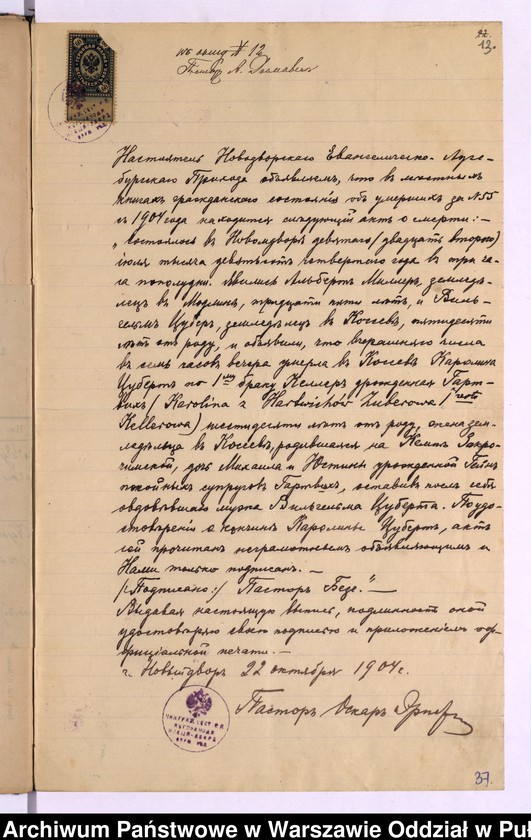 22.
13.
№ 12
Настоятель Новодворского Евангелическо-Аугс-
бургского Прихода объявляет, что в местных
книгах гражданского состояния об умерших за № 55
с 1904 года находится следующий акт о смерти: —
„Состоялось в Новомдворе девятого/двадцать второго/
июля тысяча девятьсот четвертого года в три ча-
са пополудни. Явились Альберт Миллер, земледѣ-
лец в Модлине, тридцати пяти лѣт, и Виль-
гельм Цуберт, земледѣлец в Коссеве, пятидесяти
лѣт от роду, и объявили, что вчерашняго числа
в семь часов вечера умерла в Коссеве Каролина
Цуберт по 1ᵐᵘ браку Келлер урожденная Гарт-
вих / Karolina z Hartwichów Zubertowa 1°voto
Kellerowa / шестидесяти лѣт от роду, жена зем-
ледѣльца в Коссеве, родившаяся на Кемпе Закро-
чимской, дочь Михаила и Юстины урожденной
покойных супругов Гартвих, оставив после себя
овдовѣвшаго мужа Вильгельма Цуберта. По удо-
стоверении о кончине Каролины Цуберт, акт
сей прочитан неграмотным объявляющим и
Нами только подписан. —
/: Подписано :/ Пастор Безе." —
Выдавая настоящую выпись, подлинность оной
удостоверяю своею подписью и приложением оф-
фициальной печати. —
г. Новыйдвор 22 октября 1904 г.
Пастор Оскар
37.
Archiwum Państwowe w Warszawie Oddział w Pu